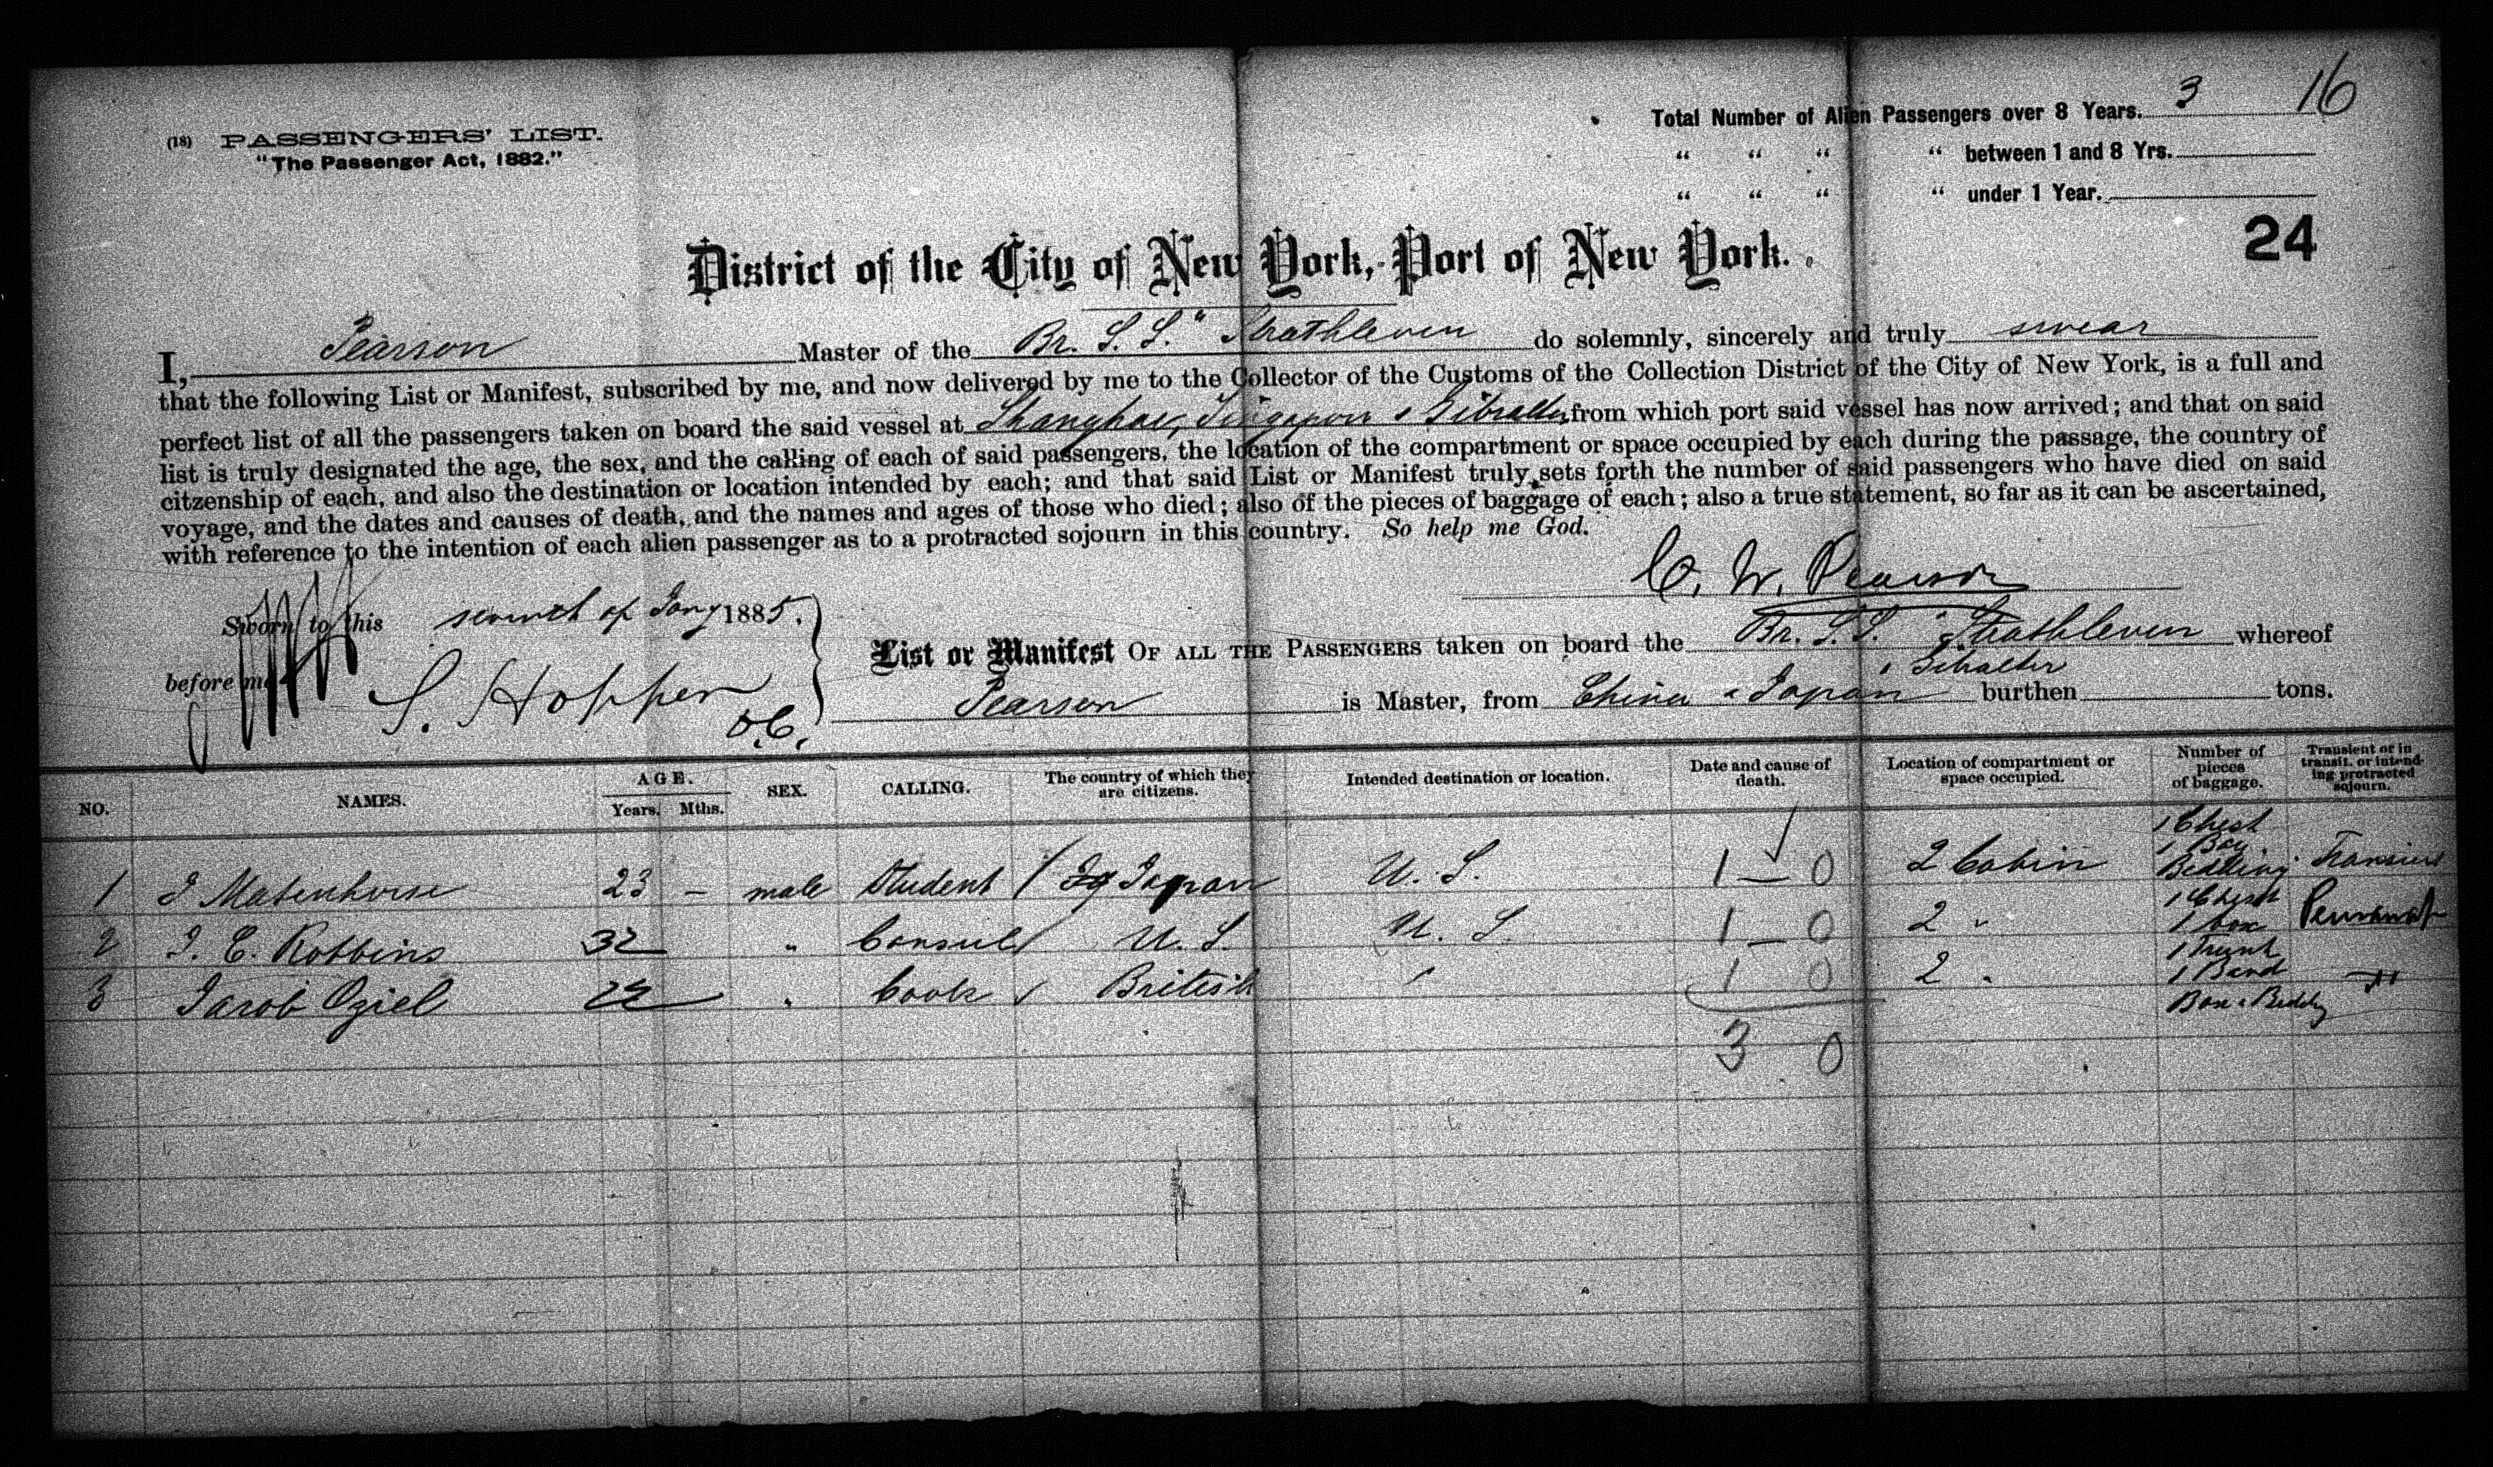 Total Number of Alien Passengers over 8 Years. 3 16
(18) PASSENGERS' LIST.
"The Passenger Act, 1882."
" " " " between 1 and 8 Yrs.
" " " " under 1 Year.
24
District of the City of New York, Port of New York.
I, Pearson Master of the Br. S. S. "Strathleven do solemnly, sincerely and truly swear
that the following List or Manifest, subscribed by me, and now delivered by me to the Collector of the Customs of the Collection District of the City of New York, is a full and
perfect list of all the passengers taken on board the said vessel at Shanghae, Singapore & Gibralter from which port said vessel has now arrived; and that on said
list is truly designated the age, the sex, and the calling of each of said passengers, the location of the compartment or space occupied by each during the passage, the country of
citzenship of each, and also the destination or location intended by each; and that said List or Manifest truly sets forth the number of said passengers who have died on said
voyage, and the dates and causes of death, and the names and ages of those who died; also of the pieces of baggage of each; also a true statement, so far as it can be ascertained,
with reference to the intention of each alien passenger as to a protracted sojourn in this country. So help me God.
C. W. Pearson
Sworn to this seventh of Jany 1885.
before me S. Hopper
D.C.
List or Manifest OF ALL THE PASSENGERS taken on board the Br. S.S. "Strathleven whereof
Pearson is Master, from China & Japan & Gibralter burthen tons.
NO. NAMES. AGE. Years. Mths. SEX. CALLING. The country of which they are citizens. Intended destination or location. Date and cause of death. Location of compartment or space occupied. Number of pieces of baggage. Transient or in transit, or intending protracted sojourn.
1 23 — male Student Japan U. S. 1 — 0 2 Cabin 1 Chest 1 Box Bedding Transient
2 J. E. Robbins 32 " Consul U. S. U. S. 1 — 0 2 " 1 Chest 1 box Permanent
3 Jacob Oziel 22 " Cook British " 1 0 2 " 1 Trunk 1 Band Box & Bedding "
3 0